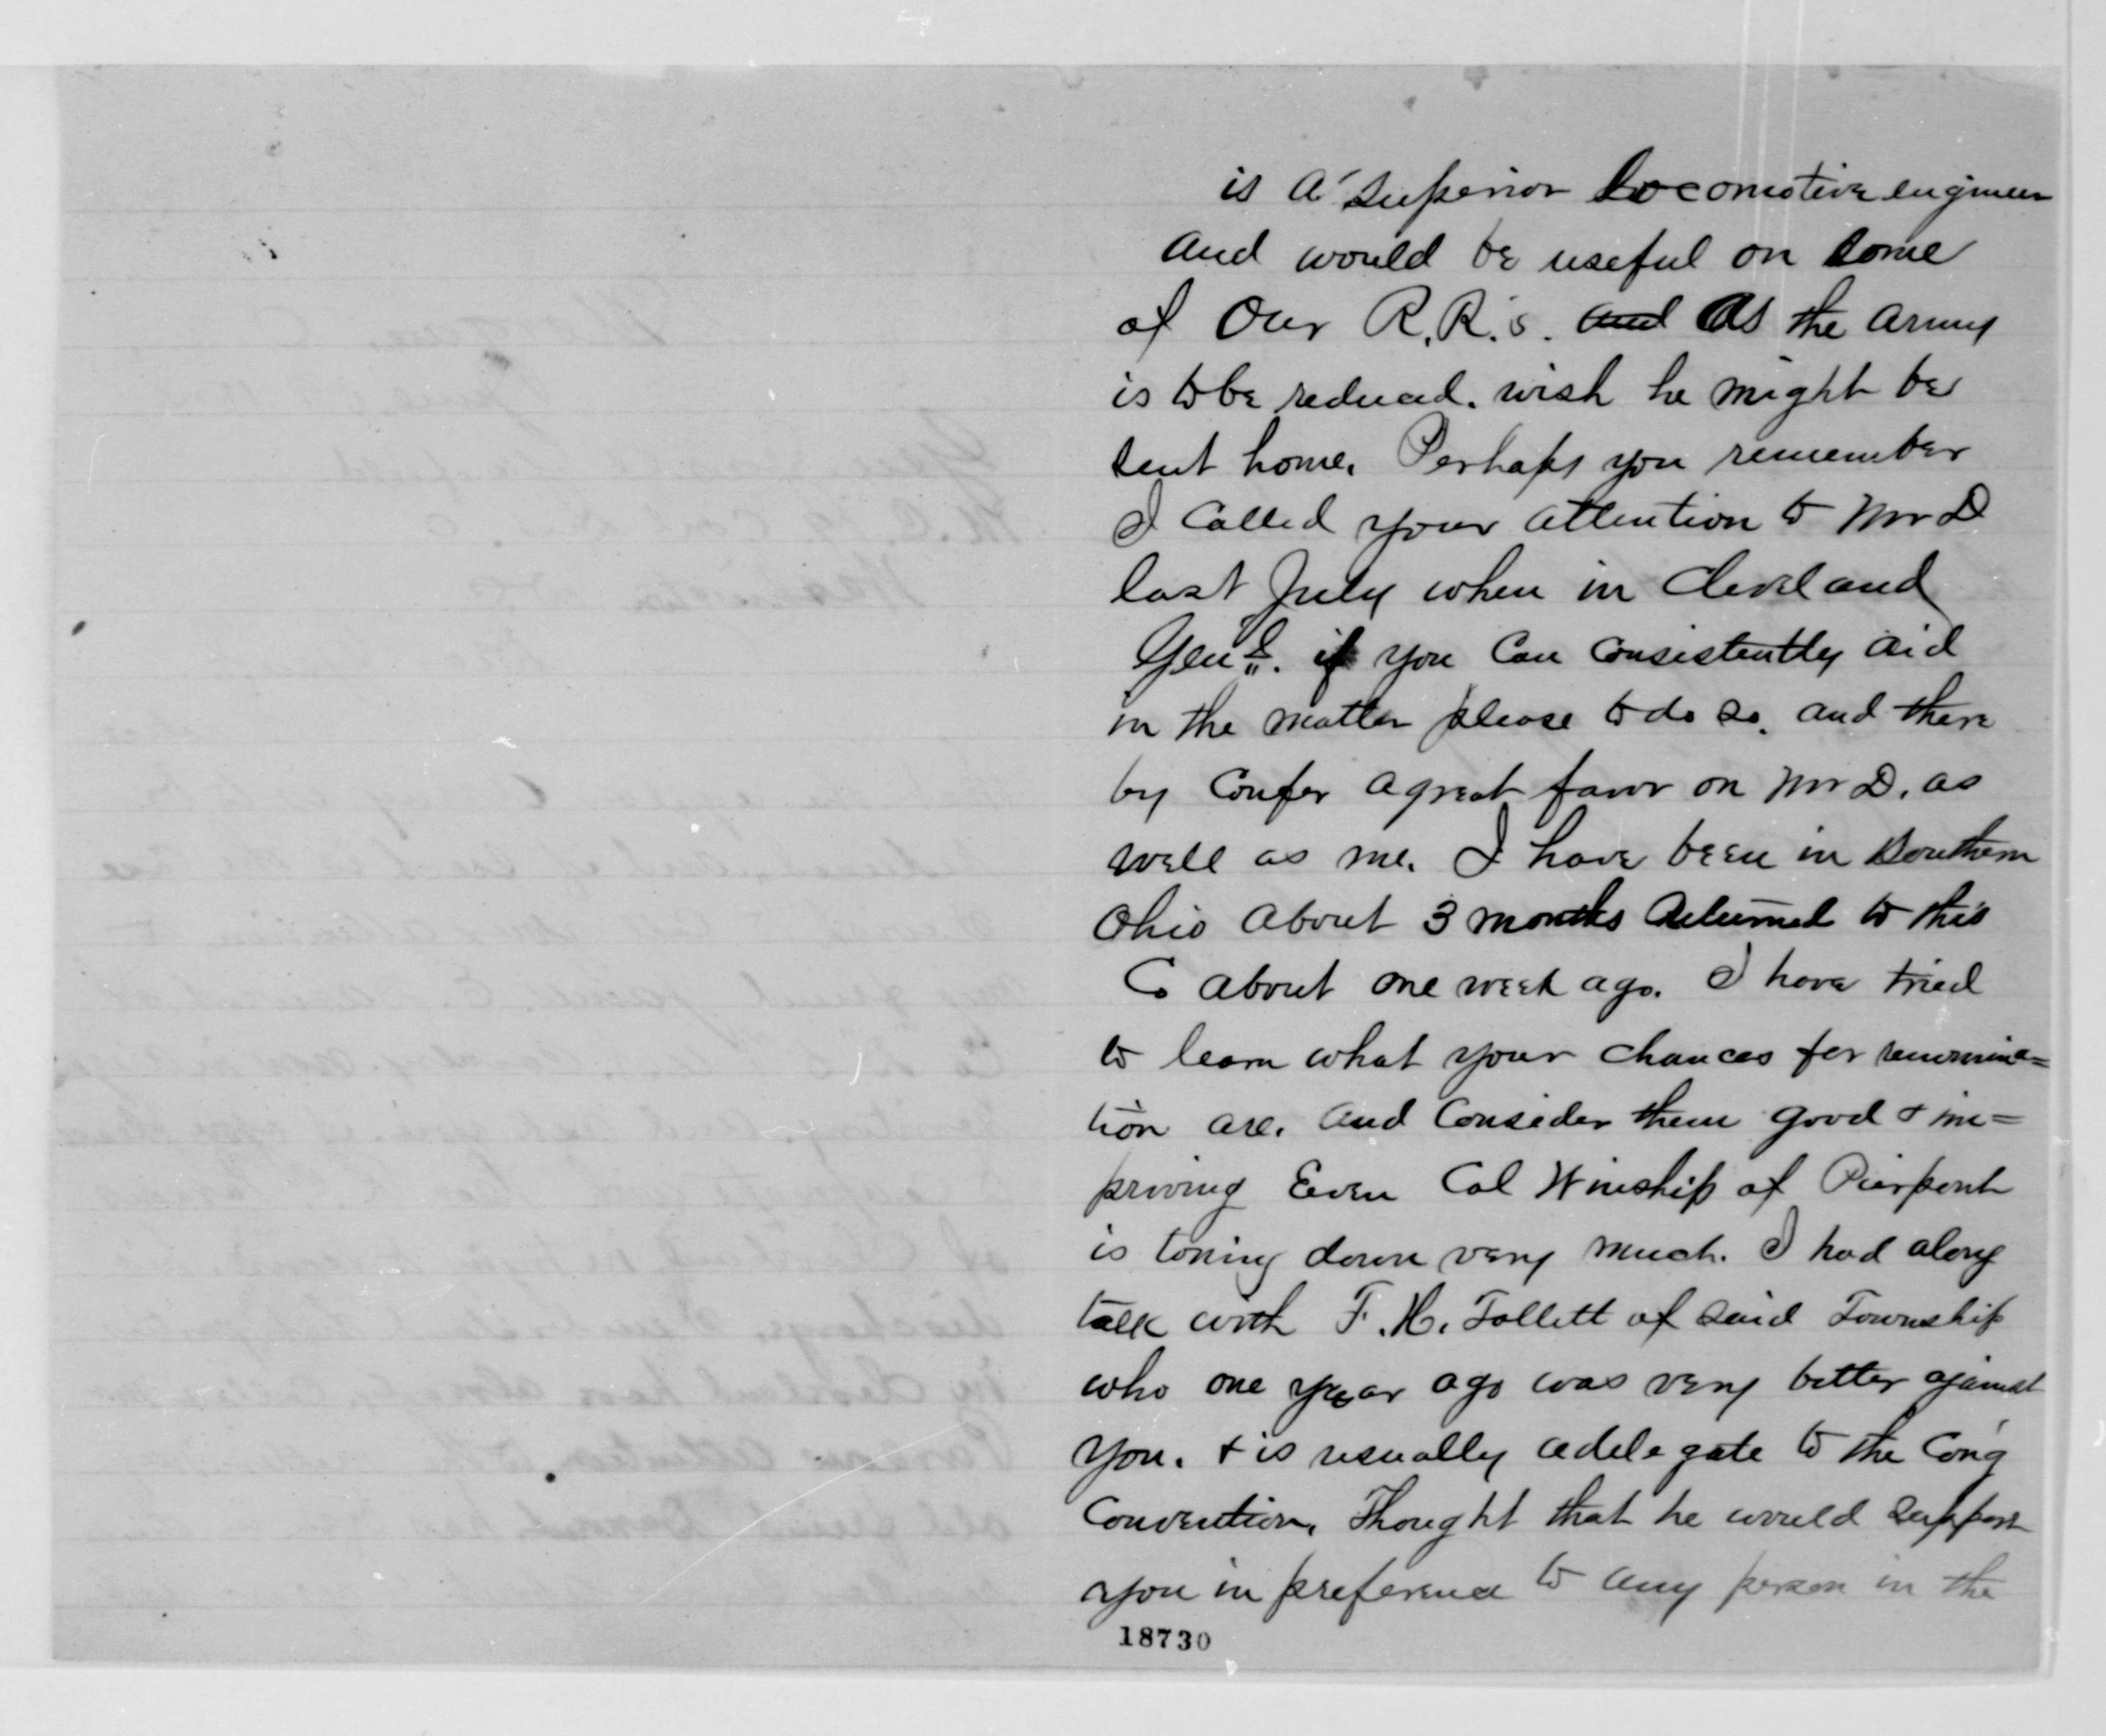 is a superior locomotive engineer
and would be useful on some
of our R.R.'s. and As the army
is to be reduced. wish he might be
sent home. Perhaps you remember
I called your attention to Mr D
last July when in Cleveland
Genl. if you can consistently aid
in the matter please to do so. and there
by confer a great favor on Mr D. as
well as me. I have been in Southern
Ohio about 3 months Returned to this
Co about one week ago. I have tried
to learn what your chances for renomina=
tion are. and consider them good & im=
proving Even Col Winship of Pierpont
is toning down very much. I had a long
talk with F. H. Follett of said Township
who one year ago was very bitter against
you. & is usually a delegate to the Cong
Convention. Thought that he would support
you in preference to any person in the
18730